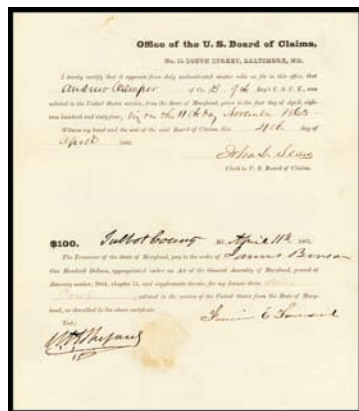 Office of the U.S. Board of Claims,
No. 34 SOUTH STREET, BALTIMORE, MD.
I hereby certify that it appears from duly authenticated muster rolls on file in this office, that
Andrew Camper of the B. 9th Reg't U.S.C.T., was
enlisted in the United States service, from the State of Maryland, prior to the first day of April, eigh-
teen hundred and sixty-four, viz on the 11th day November 1863
Witness my hand and the seal of the said Board of Claims, this 4th day of
April 1865.
John S. Sears
Clerk to U. S. Board of Claims.
$100. Talbot County Md. April 11th 1865.
The Treasurer of the State of Maryland, pay to the order of James
One Hundred Dollars, appropriated under an Act of the General Assembly of Maryland, passed at
January session, 1864, chapter 15, and supplements thereto, for my former slave,
Camper enlisted in the service of the United States from the State of Mary-
land, as described in the above certificate.
Test:
E.